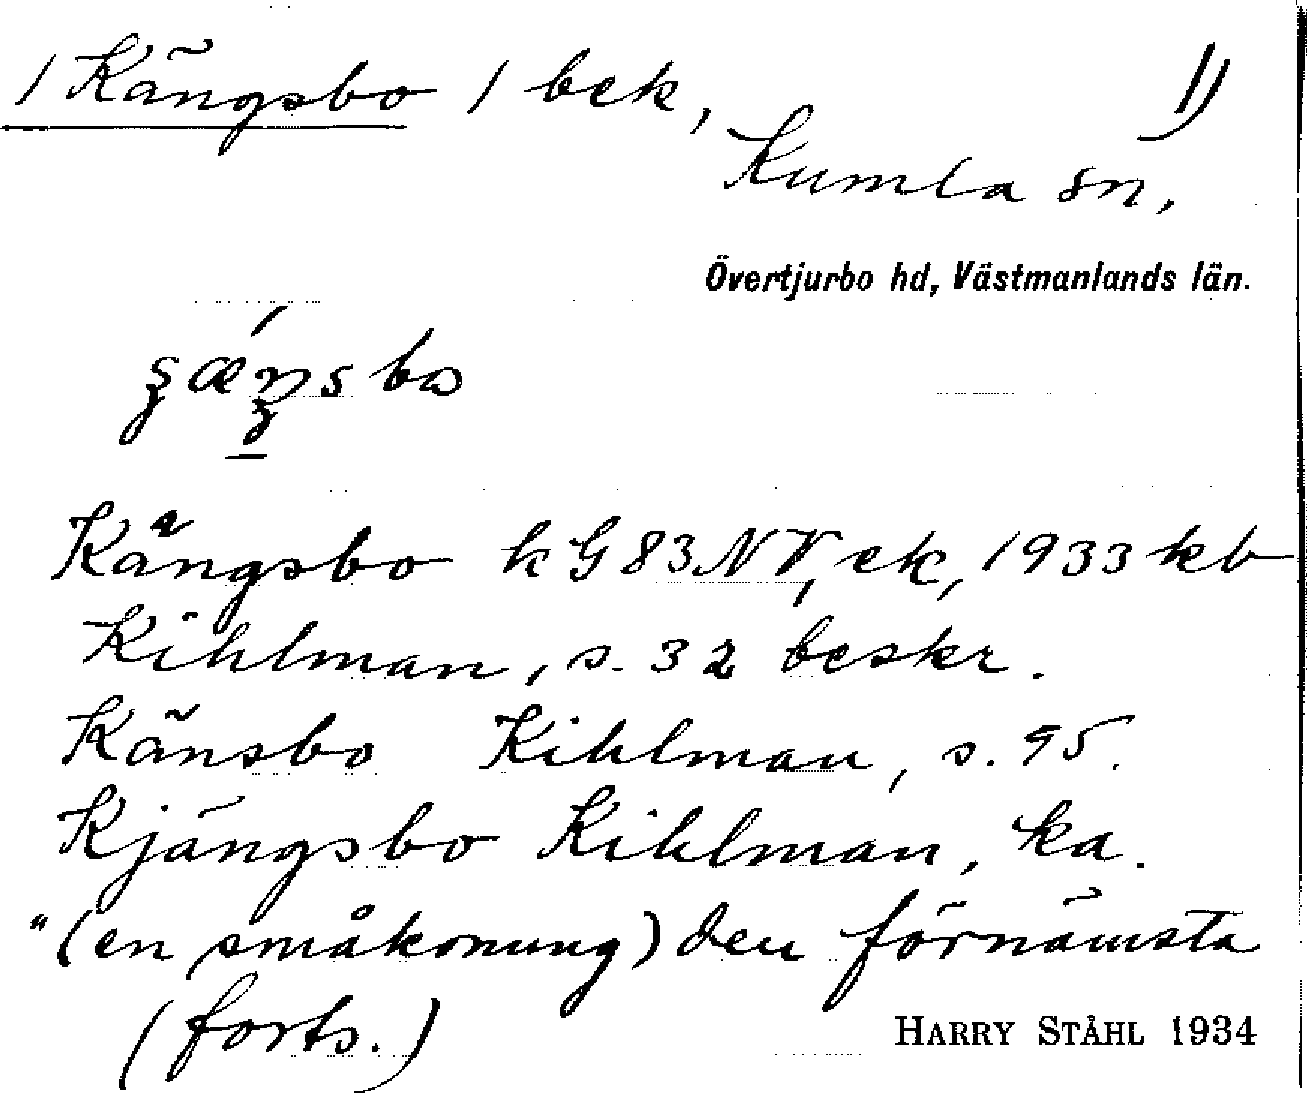 / Kängsbo / bek,
1)
Kumla sn,
Övertjurbo hd, Västmanlands län.
Kängsbo k G83NV, ek, 1933 kb
Kihlman, s. 32 beskr.
Känsbo Kihlman, s. 95.
Kjängsbo Kihlman, ka.
"(en småkonung) den förnämsta
(forts.)
HARRY STÅHL 1934